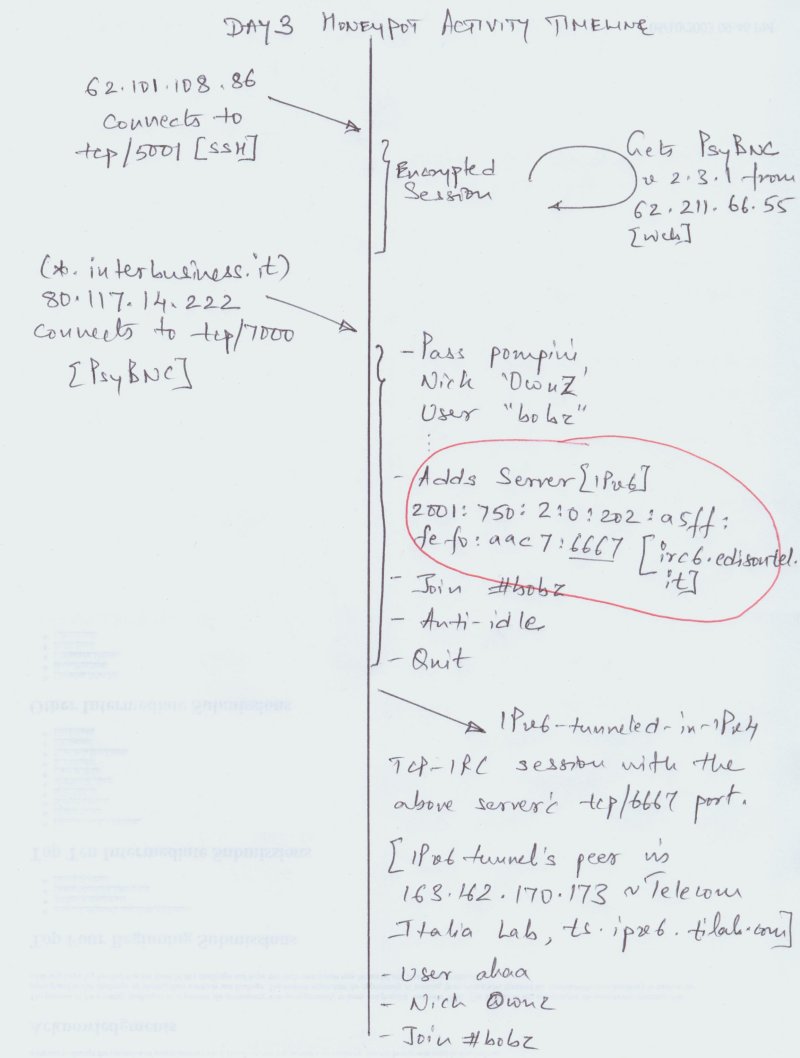 DAY 3 HONEYPOT ACTIVITY TIMELINE
62.101.108.86
connects to
tcp/5001 [SSH]
Encrypted
Session
Gets PsyBNC
v 2.3.1 from
62.211.66.55
[web]
(*.interbusiness.it)
80.117.14.222
connects to tcp/7000
[PsyBNC]
- Pass pompini
Nick 'OwnZ'
User "bobz"
- Adds Server [IPv6]
2001:750:2:0:202:a5ff:
fef0:aac7:6667 [irc6.edisontel.
it]
- Join #bobz
- Anti-idle
- Quit
IPv6-tunneled-in-IPv4
TCP-IRC session with the
above server's tcp/6667 port.
[IPv6 tunnel's peer is
163.162.170.173 ~ Telecom
Italia Lab, ts.ipv6.tilab.com]
- User ahaa
- Nick Ownz
- Join #bobz
Other Intermediate Submissions
Top Ten Intermediate Submissions
Top Four Beginning Submissions
Acknowledgments